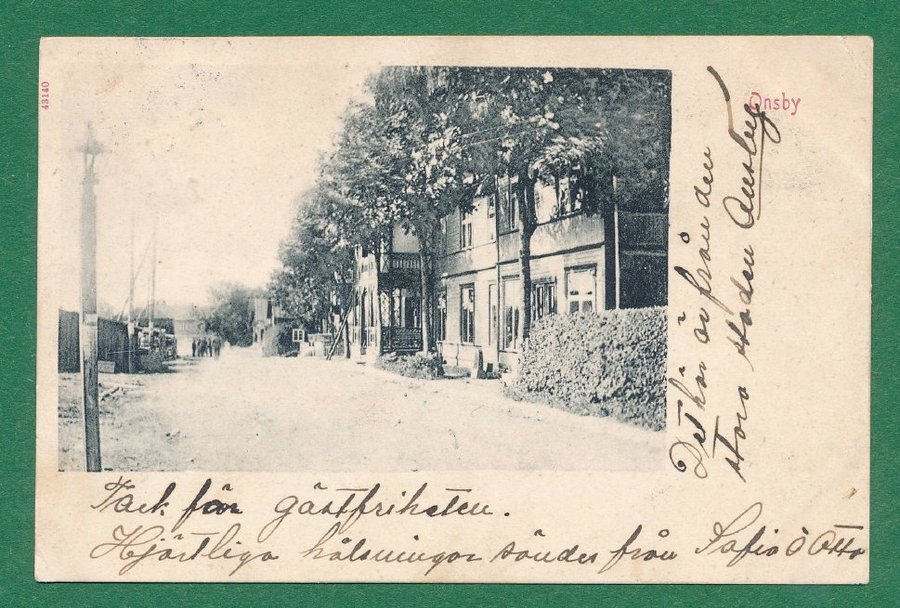 43140
Onsby
Det här är från den
stora staden Ousby
Tack för gästfriheten.
Hjärtliga hälsningar sändes från Safia o Otto